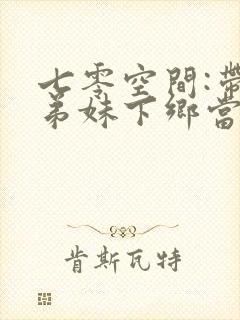 七零空間:帶
弟妹下鄉當
肯斯瓦特